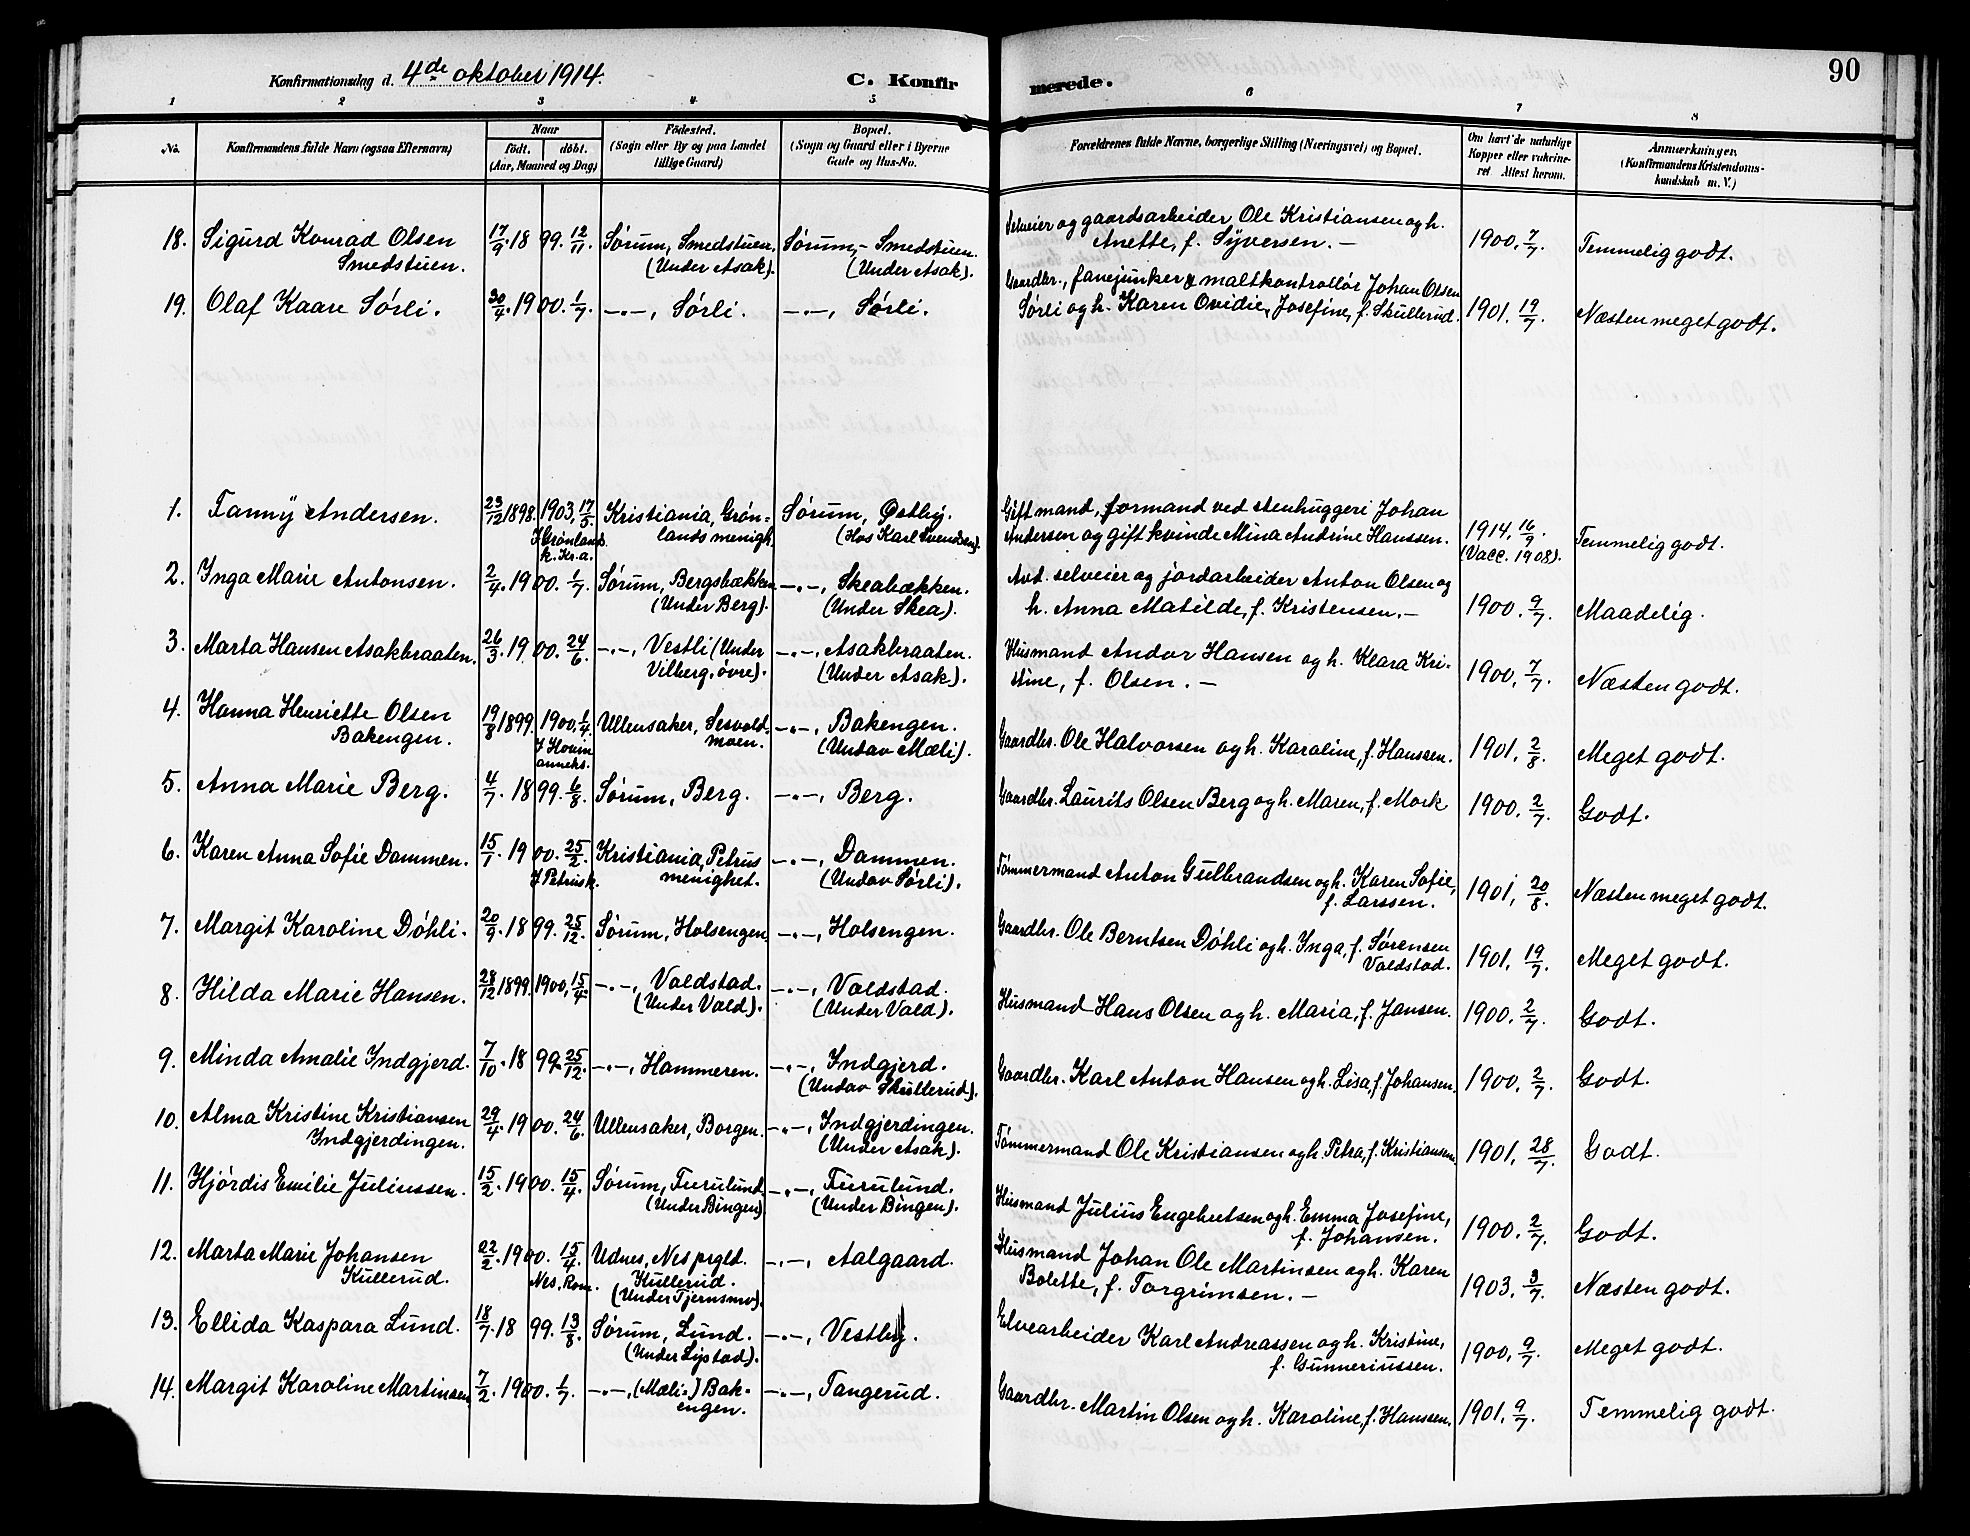 Konfirmationsdag d. 4de oktober 1914.
C. Konfirmerede.
90
1 2 3 4 5 6 7 8
No.
Konfirmandens fulde Navn (ogsaa Efternavn)
Naar
födt. döbt.
(Aar, Maaned og Dag)
Födested.
(Sogn eller By og paa Landet
tillige Gaard)
Bopæl.
(Sogn og Gaard eller i Byerne
Gade og Hus-No.
Forældrenes fulde Navne, borgerlige Stilling (Næringsvei) og Bopæl.
Om havt de naturlige
Kopper eller vakcine-
ret Attest herom.
Anmærkninger.
(Konfirmandens Kristendoms-
kundskab m. V.)
18. Sigurd Konrad Olsen
Smedstuen.
17/9. 1899. 12/11.
Sørum, Smedstuen.
(Under Asak).
Sørum, - Smedstuen.
(Under Asak).
Selveier og gaardsarbeider Ole Kristiansen og h.
Anette, f. Syversen. -
1900, 7/7.
Temmelig godt.
19. Olaf Kaare Sørli.
30/4. 1900. 1/7.
-"-, Sørli.
-"-, Sørli.
Gaardbr., fanejunker & maltkontrollør Johan Olsen
Sørli og h. Karen Ovidie, Josefine, f. Skullerud.
1901, 19/7.
Næsten meget godt.
1. Fanny Andersen.
23/12 1898. 1903, 17/5.
I Grønlands
k. Kr.a.
Kristiania, Grøn-
lands menigh.
Sørum, Østby.
(Hos Karl Svendsen).
Gift mand, formand ved stenhuggeri Johan
Andersen og gift kvinde Mina Andrine Hanssen.
1914, 16/9.
(Vacc. 1908).
Temmelig godt.
2. Inga Marie Antonsen.
2/4. 1900. 1/7.
Sørum, Bergsbækken
(Under Berg).
-"-, Skeabækken.
(Under Skea).
Avd. selveier og jordarbeider Anton Olsen og
h. Anna Matilde, f. Kristensen. -
1900. 9/7.
Maadelig.
3. Marta Hansen Asakbraaten.
26/3. 1900. 24/6.
-"-, Vestli (Under
Vilberg, øvre).
-"-, Asakbraaten.
(Under Asak).
Husmand Andor Hansen og h. Klara Kri-
stine, f. Olsen. -
1900, 7/7.
Næsten godt.
4. Hanna Henriette Olsen
Bakengen.
19/8 1899. 1900. 1/4.
I Hovin
anneks.
Ullensaker, Sesvold-
moen.
-"-, Bakengen.
(Undav Mæli).
Gaardbr. Ole Halvorsen og h. Karoline, f. Hanssen.
1901, 2/8.
Meget godt.
5. Anna Marie Berg.
4/7. 1899. 6/8.
Sørum, Berg.
-"-, Berg.
Gaardbr. Laurits Olsen Berg og h. Maren, f. Mork
1900. 2/7.
Godt.
6. Karen Anna Sofie Dammen.
15/1. 1900. 25/2.
I Petrusk.
Kristiania, Petrus
menighet.
-"-, Dammen.
(Undav Sørli).
Tømmermand Anton Gulbrandsen og h. Karen Sofie,
f. Larssen.
1901, 20/8.
Næsten meget godt.
7. Margit Karoline Døhli.
20/9. 1899. 25/12.
Sørum, Holsengen
-"-, Holsengen.
Gaardbr. Ole Berntsen Døhli og h. Inga, f. Sørensen
Valdstad.
1901, 19/7.
Meget godt.
8. Hilda Marie Hansen.
28/12 1899. 1900, 15/4.
-"-, Valdstad.
(Under Vald).
-"-, Valdstad.
(Under Vald).
Husmand Hans Olsen og h. Maria, f. Jansen.
1900. 2/7.
Godt.
9. Minda Amalie Indgjerd.
7/10. 1899. 25/12.
-"-, Hammeren.
-"-, Indgjerd.
(Undav Skullerud).
Gaardbr. Karl Anton Hansen og h. Lisa, f. Johansen.
1900. 2/7.
Godt.
10. Alma Kristine Kristiansen
Indgjerdingen.
29/4. 1900. 24/6.
Ullensaker, Borgen.
-"-, Indgjerdingen.
(Under Asak).
Tømmermand Ole Kristiansen og h. Petra, f. Kristiansen
1901, 28/7.
Godt.
11. Hjørdis Emilie Juliussen.
15/2. 1900. 15/4.
Sørum, Furulund
(Under Bingen)
-"-, Furulund.
(Under Bingen).
Husmand Julius Engebretsen og h. Emma Josefine,
f. Johansen.
1900. 2/7.
Godt.
12. Marta Marie Johansen
Kullerud.
22/2. 1900. 15/4.
Nes, Rom.
Udnes, Nes prgld.
Kullerud.
(Under Tjernsmo).
-"-, Aalgaard.
Husmand Johan Ole Martinsen og h. Karen
Bolette, f. Torgrimsen. -
1903, 3/7.
Næsten godt.
13. Ellida Kaspara Lund.
18/7. 1899. 13/8.
Sørum, Lund.
(Under Lystad).
-"-, Vestby.
Elvearbeider Karl Andreassen og h. Kristine,
f. Gunneriussen.
1900, 9/7.
Meget godt.
14. Margit Karoline Martinsen
7/2. 1900. 1/7.
-"-, (Mæli-) Bak-
engen.
-"-, Tangerud.
Gaardbr. Martin Olsen og h. Karoline, f. Hanssen.
1901, 9/7.
Temmelig godt.